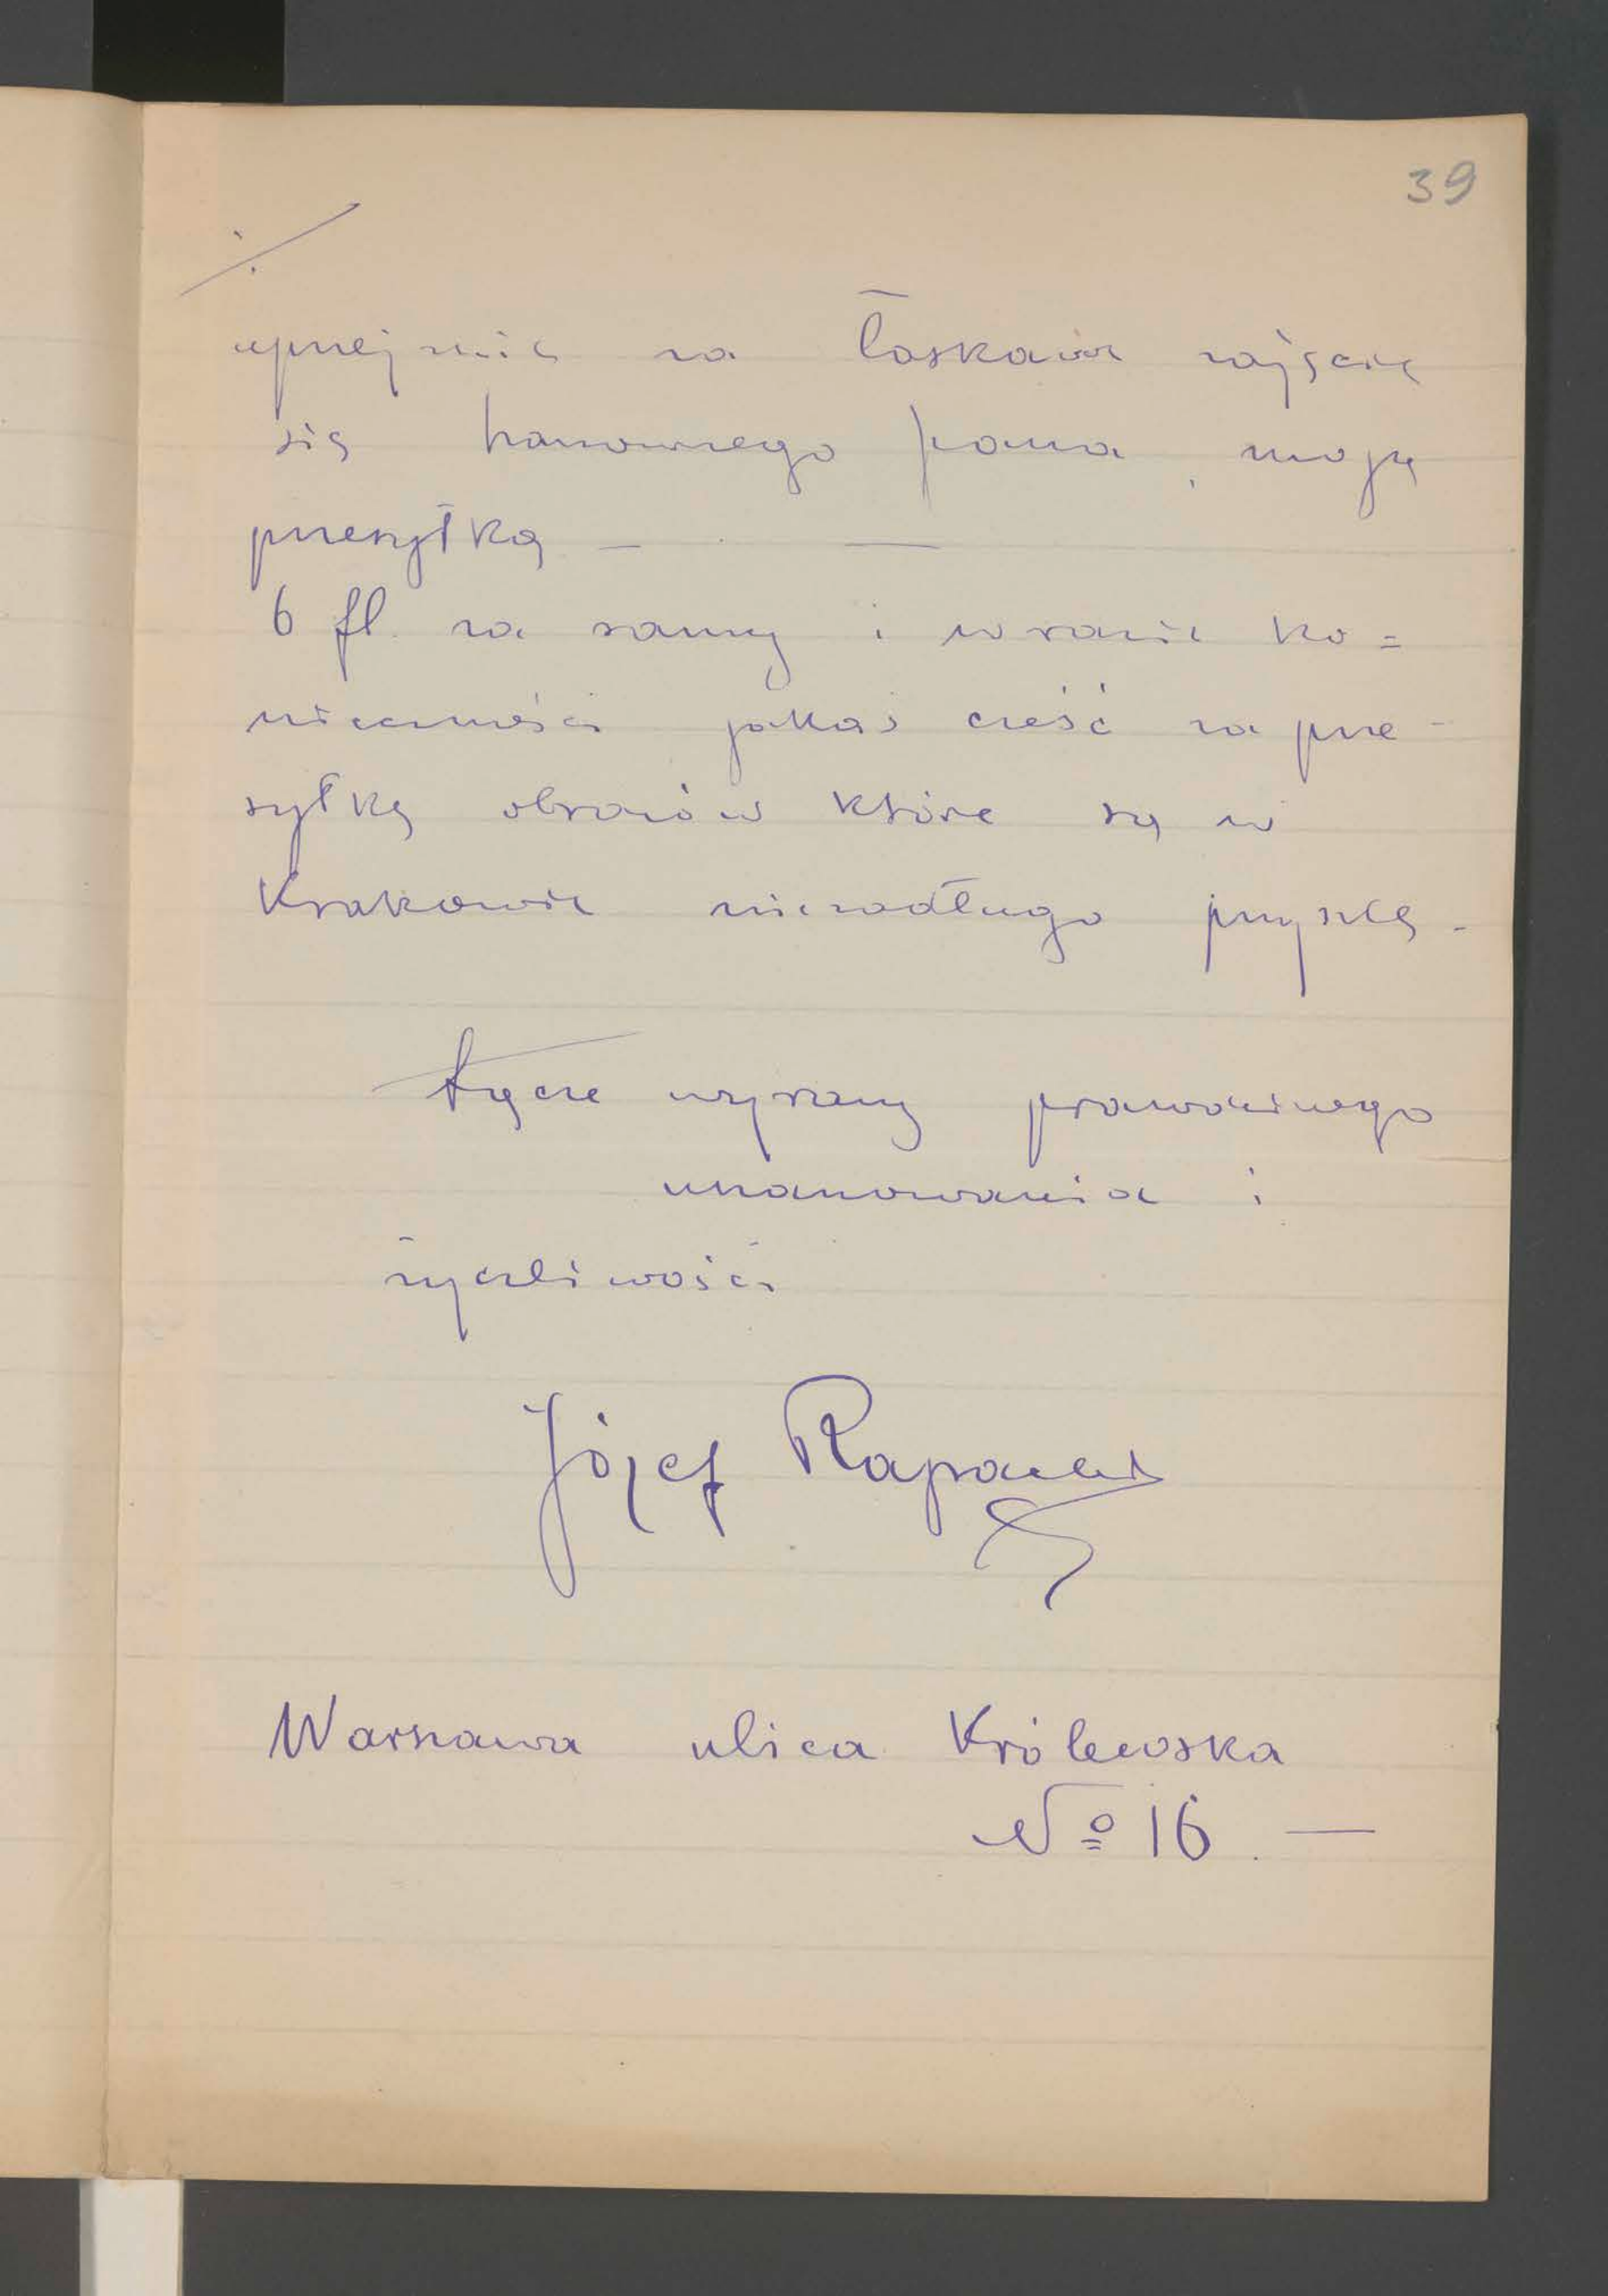 39
./.
uprzejmie za łaskawe zajęcie
się szanownego pana, moją
przesyłką —  —
6 fl. za ramy i w razie ko=
nieczności jakąś cześć za prze-
syłkę obrazów które są w
Krakowie niezadługo przyszlę.
Łączę wyrazy prawdziwego
uszanowania i
życzliwości
Józef Rapacki
Warszawa ulica Królewska
№ 16. —